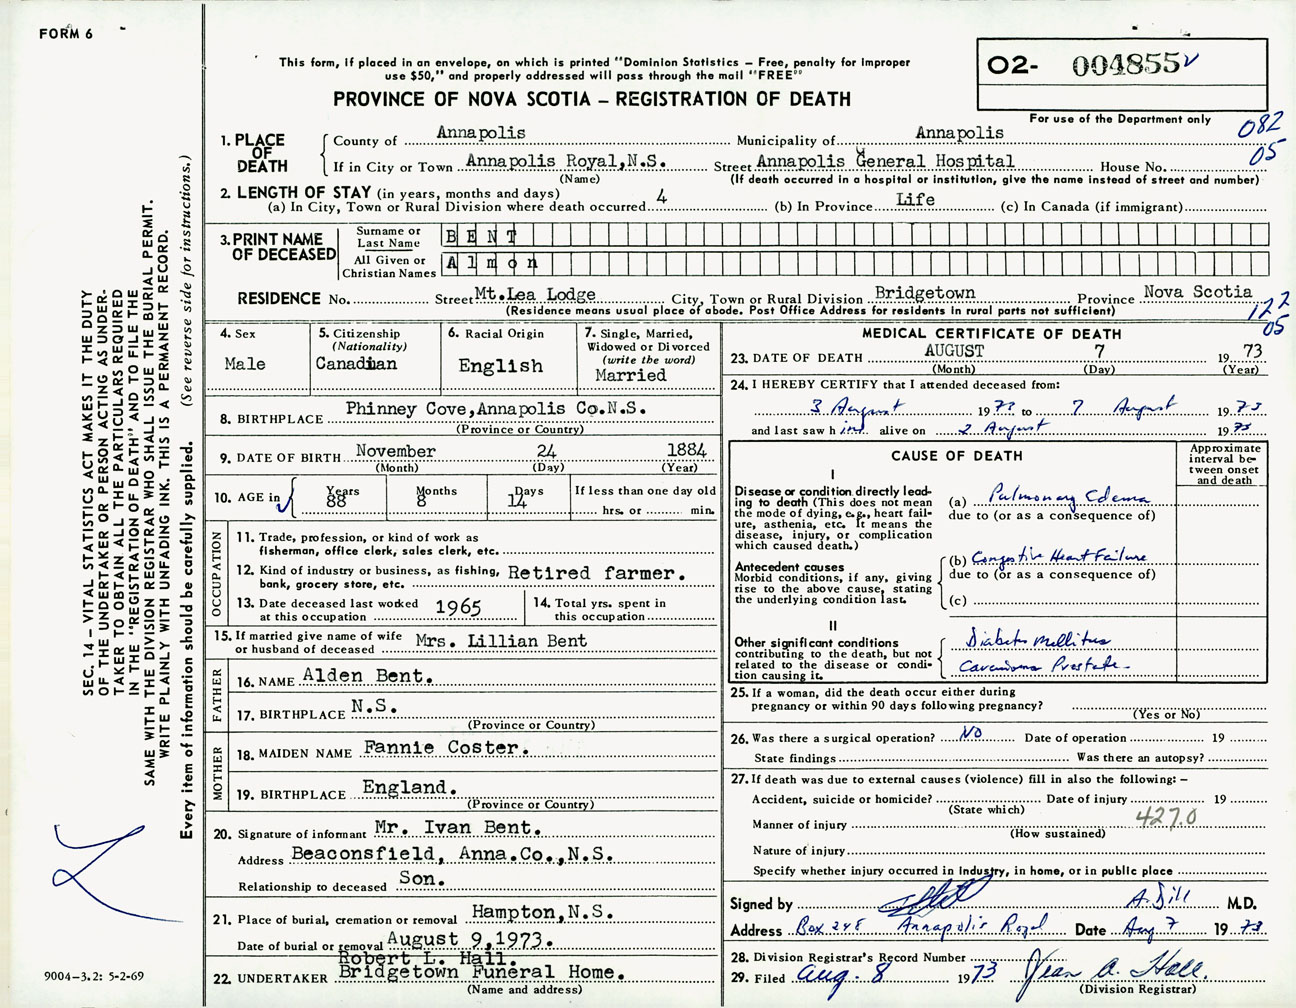 FORM 6
This form, if placed in an envelope, on which is printed "Dominion Statistics – Free, penalty for improper
use $50," and properly addressed will pass through the mail "FREE"
PROVINCE OF NOVA SCOTIA – REGISTRATION OF DEATH
O2- 004855
For use of the Department only
082
05
1. PLACE OF DEATH
County of Annapolis Municipality of Annapolis
If in City or Town Annapolis Royal,N.S. Street Annapolis General Hospital House No.
(Name) (If death occurred in a hospital or institution, give the name instead of street and number)
2. LENGTH OF STAY (in years, months and days)
(a) In City, Town or Rural Division where death occurred 4 (b) In Province Life (c) In Canada (if immigrant)
3. PRINT NAME OF DECEASED
Surname or Last Name BENT
All Given or Christian Names Almon
RESIDENCE No. Street Mt.Lea Lodge City, Town or Rural Division Bridgetown Province Nova Scotia
(Residence means usual place of abode. Post Office Address for residents in rural parts not sufficient)
122
05
4. Sex
Male
5. Citizenship
(Nationality)
Canadian
6. Racial Origin
English
7. Single, Married,
Widowed or Divorced
(write the word)
Married
8. BIRTHPLACE Phinney Cove,Annapolis Co.N.S.
(Province or Country)
9. DATE OF BIRTH November 24 1884
(Month) (Day) (Year)
10. AGE in Years 88 Months 8 Days 14 If less than one day old
hrs. or min.
OCCUPATION
11. Trade, profession, or kind of work as
fisherman, office clerk, sales clerk, etc.
12. Kind of industry or business, as fishing, Retired farmer.
bank, grocery store, etc.
13. Date deceased last worked 1965
at this occupation
14. Total yrs. spent in
this occupation
15. If married give name of wife Mrs. Lillian Bent
or husband of deceased
FATHER
16. NAME Alden Bent.
17. BIRTHPLACE N.S.
(Province or Country)
MOTHER
18. MAIDEN NAME Fannie Coster.
19. BIRTHPLACE England.
(Province or Country)
20. Signature of informant Mr. Ivan Bent.
Address Beaconsfield, Anna.Co.,N.S.
Relationship to deceased Son.
21. Place of burial, cremation or removal Hampton,N.S.
Date of burial or removal August 9,1973.
Robert L. Hall.
22. UNDERTAKER Bridgetown Funeral Home.
(Name and address)
MEDICAL CERTIFICATE OF DEATH
23. DATE OF DEATH AUGUST 7 1973
(Month) (Day) (Year)
24. I HEREBY CERTIFY that I attended deceased from:
3 August 1973 to 7 August 1973
and last saw him alive on 2 August 1973
CAUSE OF DEATH
Approximate
interval be-
tween onset
and death
I
Disease or condition directly lead-
ing to death (This does not mean
the mode of dying, e.g., heart fail-
ure, asthenia, etc. It means the
disease, injury, or complication
which caused death.)
(a) Pulmonary Edema
due to (or as a consequence of)
Antecedent causes
Morbid conditions, if any, giving
rise to the above cause, stating
the underlying condition last.
(b) Congestive Heart Failure
due to (or as a consequence of)
(c)
II
Other significant conditions
contributing to the death, but not
related to the disease or condi-
tion causing it.
Diabetes Mellitus
Carcinoma Prostate
25. If a woman, did the death occur either during
pregnancy or within 90 days following pregnancy?
(Yes or No)
26. Was there a surgical operation? No Date of operation 19
State findings Was there an autopsy?
27. If death was due to external causes (violence) fill in also the following: –
Accident, suicide or homicide? Date of injury 19
(State which)
427.0
Manner of injury
(How sustained)
Nature of injury
Specify whether injury occurred in Industry, in home, or in public place
Signed by A. Dill M.D.
Address Box 248 Annapolis Royal Date Aug 7 1973
28. Division Registrar's Record Number
29. Filed Aug. 8 1973 Jean A. Hall.
(Division Registrar)
SEC. 14 – VITAL STATISTICS ACT MAKES IT THE DUTY
OF THE UNDERTAKER OR PERSON ACTING AS UNDER-
TAKER TO OBTAIN ALL THE PARTICULARS REQUIRED
IN THE "REGISTRATION OF DEATH" AND TO FILE THE
SAME WITH THE DIVISION REGISTRAR WHO SHALL ISSUE THE BURIAL PERMIT.
WRITE PLAINLY WITH UNFADING INK. THIS IS A PERMANENT RECORD.
Every item of information should be carefully supplied. (See reverse side for instructions.)
9004–3.2: 5-2-69